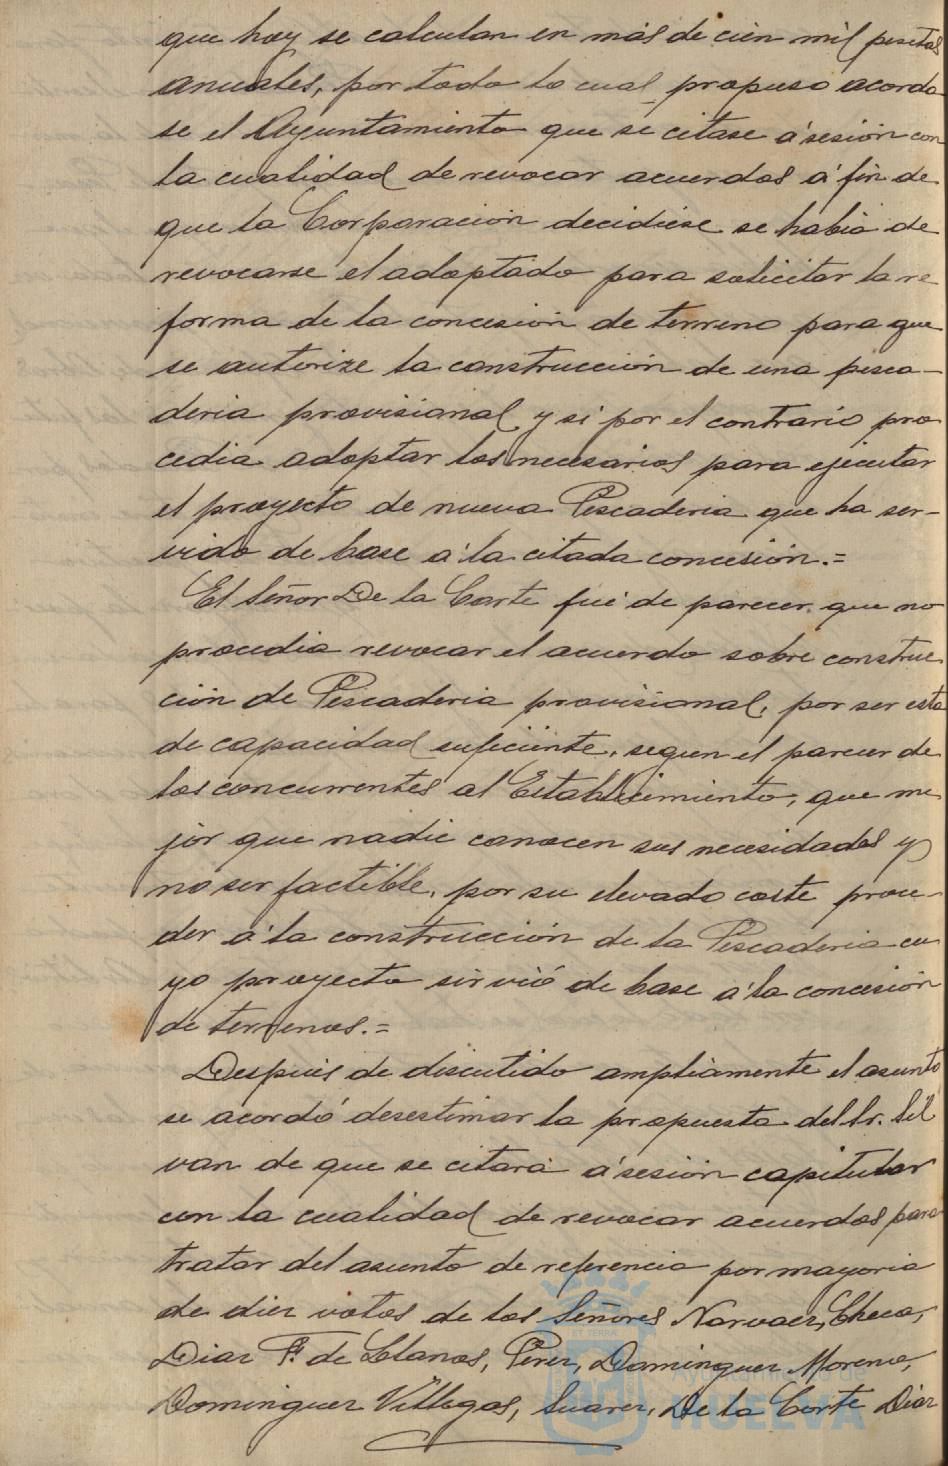 que hoy se calculan en más de cien mil pesetas
anuales, por todo lo cual propuso acorda
se el Ayuntamiento que se citase á sesión con
la cualidad de revocar acuerdos á fin de
que la Corporación decidiese se habia de
revocarse el adoptado para solicitar la re
forma de la concesión de terreno para que
se autorize la construcción de una pesca-
deria provisional y si por el contrario pro
cedia adoptar los necesarios para ejecutar
el proyecto de nueva Pescaderia que ha ser-
vido de base á la citada concesión.=
El Señor De la Corte fué de parecer que no
procedia revocar el acuerdo sobre construc
ción de Pescaderia provisional, por ser esta
de capacidad suficiente, segun el parecer de
los concurrentes al Establecimiento, que me
jor que nadie conocen sus necesidades y
no ser factible, por su elevado coste proce-
der á la construcción de la Pescaderia cu
yo proyecto sirvió de base á la concesión
de terrenos.=
Después de discutido ampliamente el asunto
se acordó desestimar la propuesta del Sr. Sil
van de que se citara á sesión capitular
con la cualidad de revocar acuerdos para
tratar del asunto de referencia por mayoria
de diez votos de los Señores Narvaez, Checa,
Diaz F. de Llanos, Perez, Dominguez Moreno,
Dominguez Villegas, Suarez, De la Corte Diaz
ET TERRA
Ayuntamiento de
HUELVA